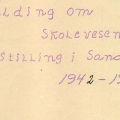 lding om
Skolevesen
Stilling i Sand
1942-19